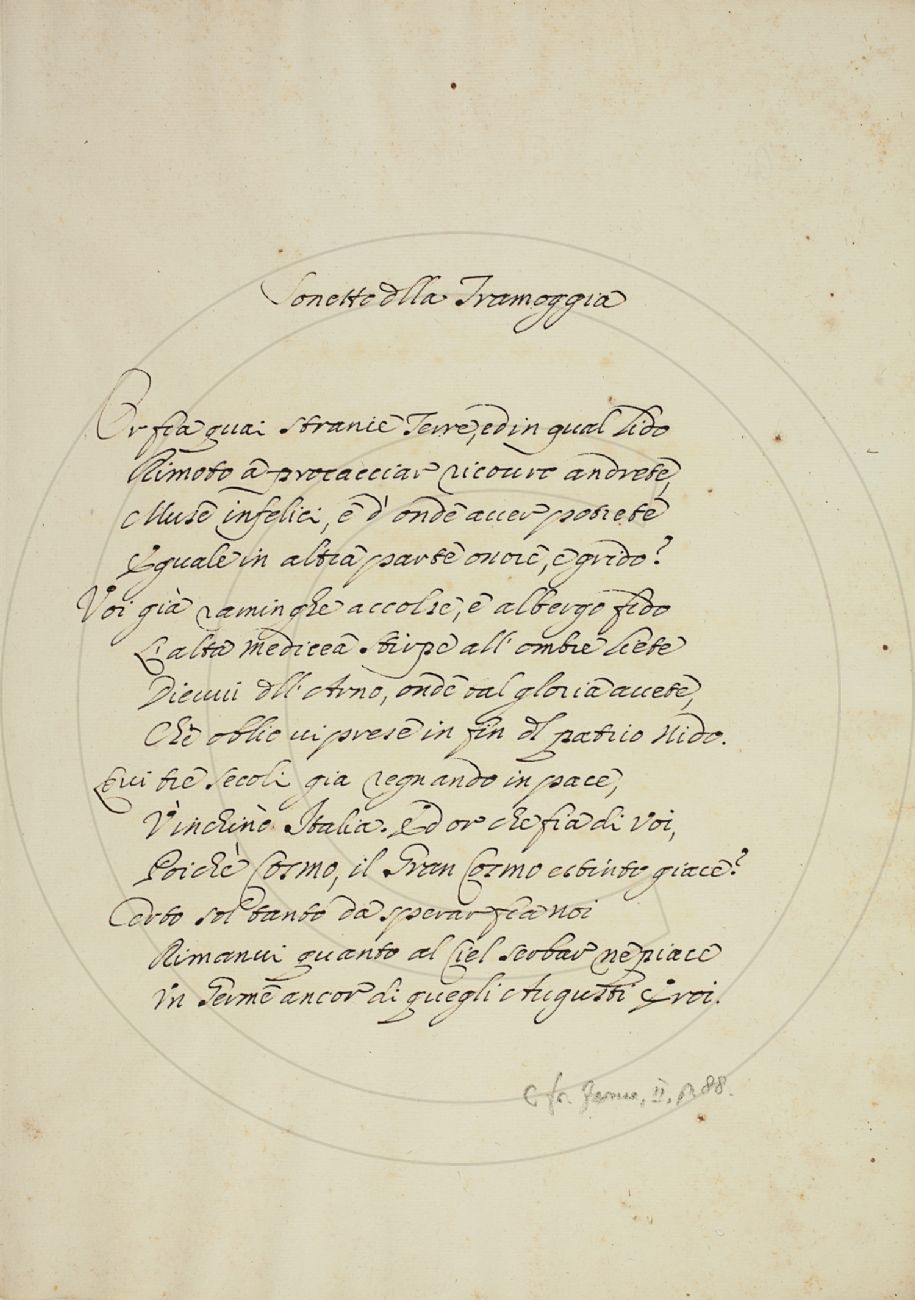 Sonetto dlla Tramoggia
Or fia quai stranie Terre, ed in qual lido
Rimoto a procacciar ricouro andrete,
Muse infelici, e d'onde auer potrete
Eguale in altra parte onore, e grido?
Voi già raminghe accolse, e albergo fido
L'alta Medicea stirpe all'ombre liete
Dieuui dll'Arno, onde tal gloria auete,
Chè oblio ui prese in fin dl patrio Nido.
E ui tre secoli gia regnando in pace,
V'inchinò Italia. Ed or che fia di Voi,
Poichè Cosmo, il Gran Cosmo estinto giace?
Certo sol tanto da sperar fia noi
Rimanui quanto al Ciel serbar ne piace
In Germe ancor di quegli Augusti Eroi.
Cfr. II, p. 88.